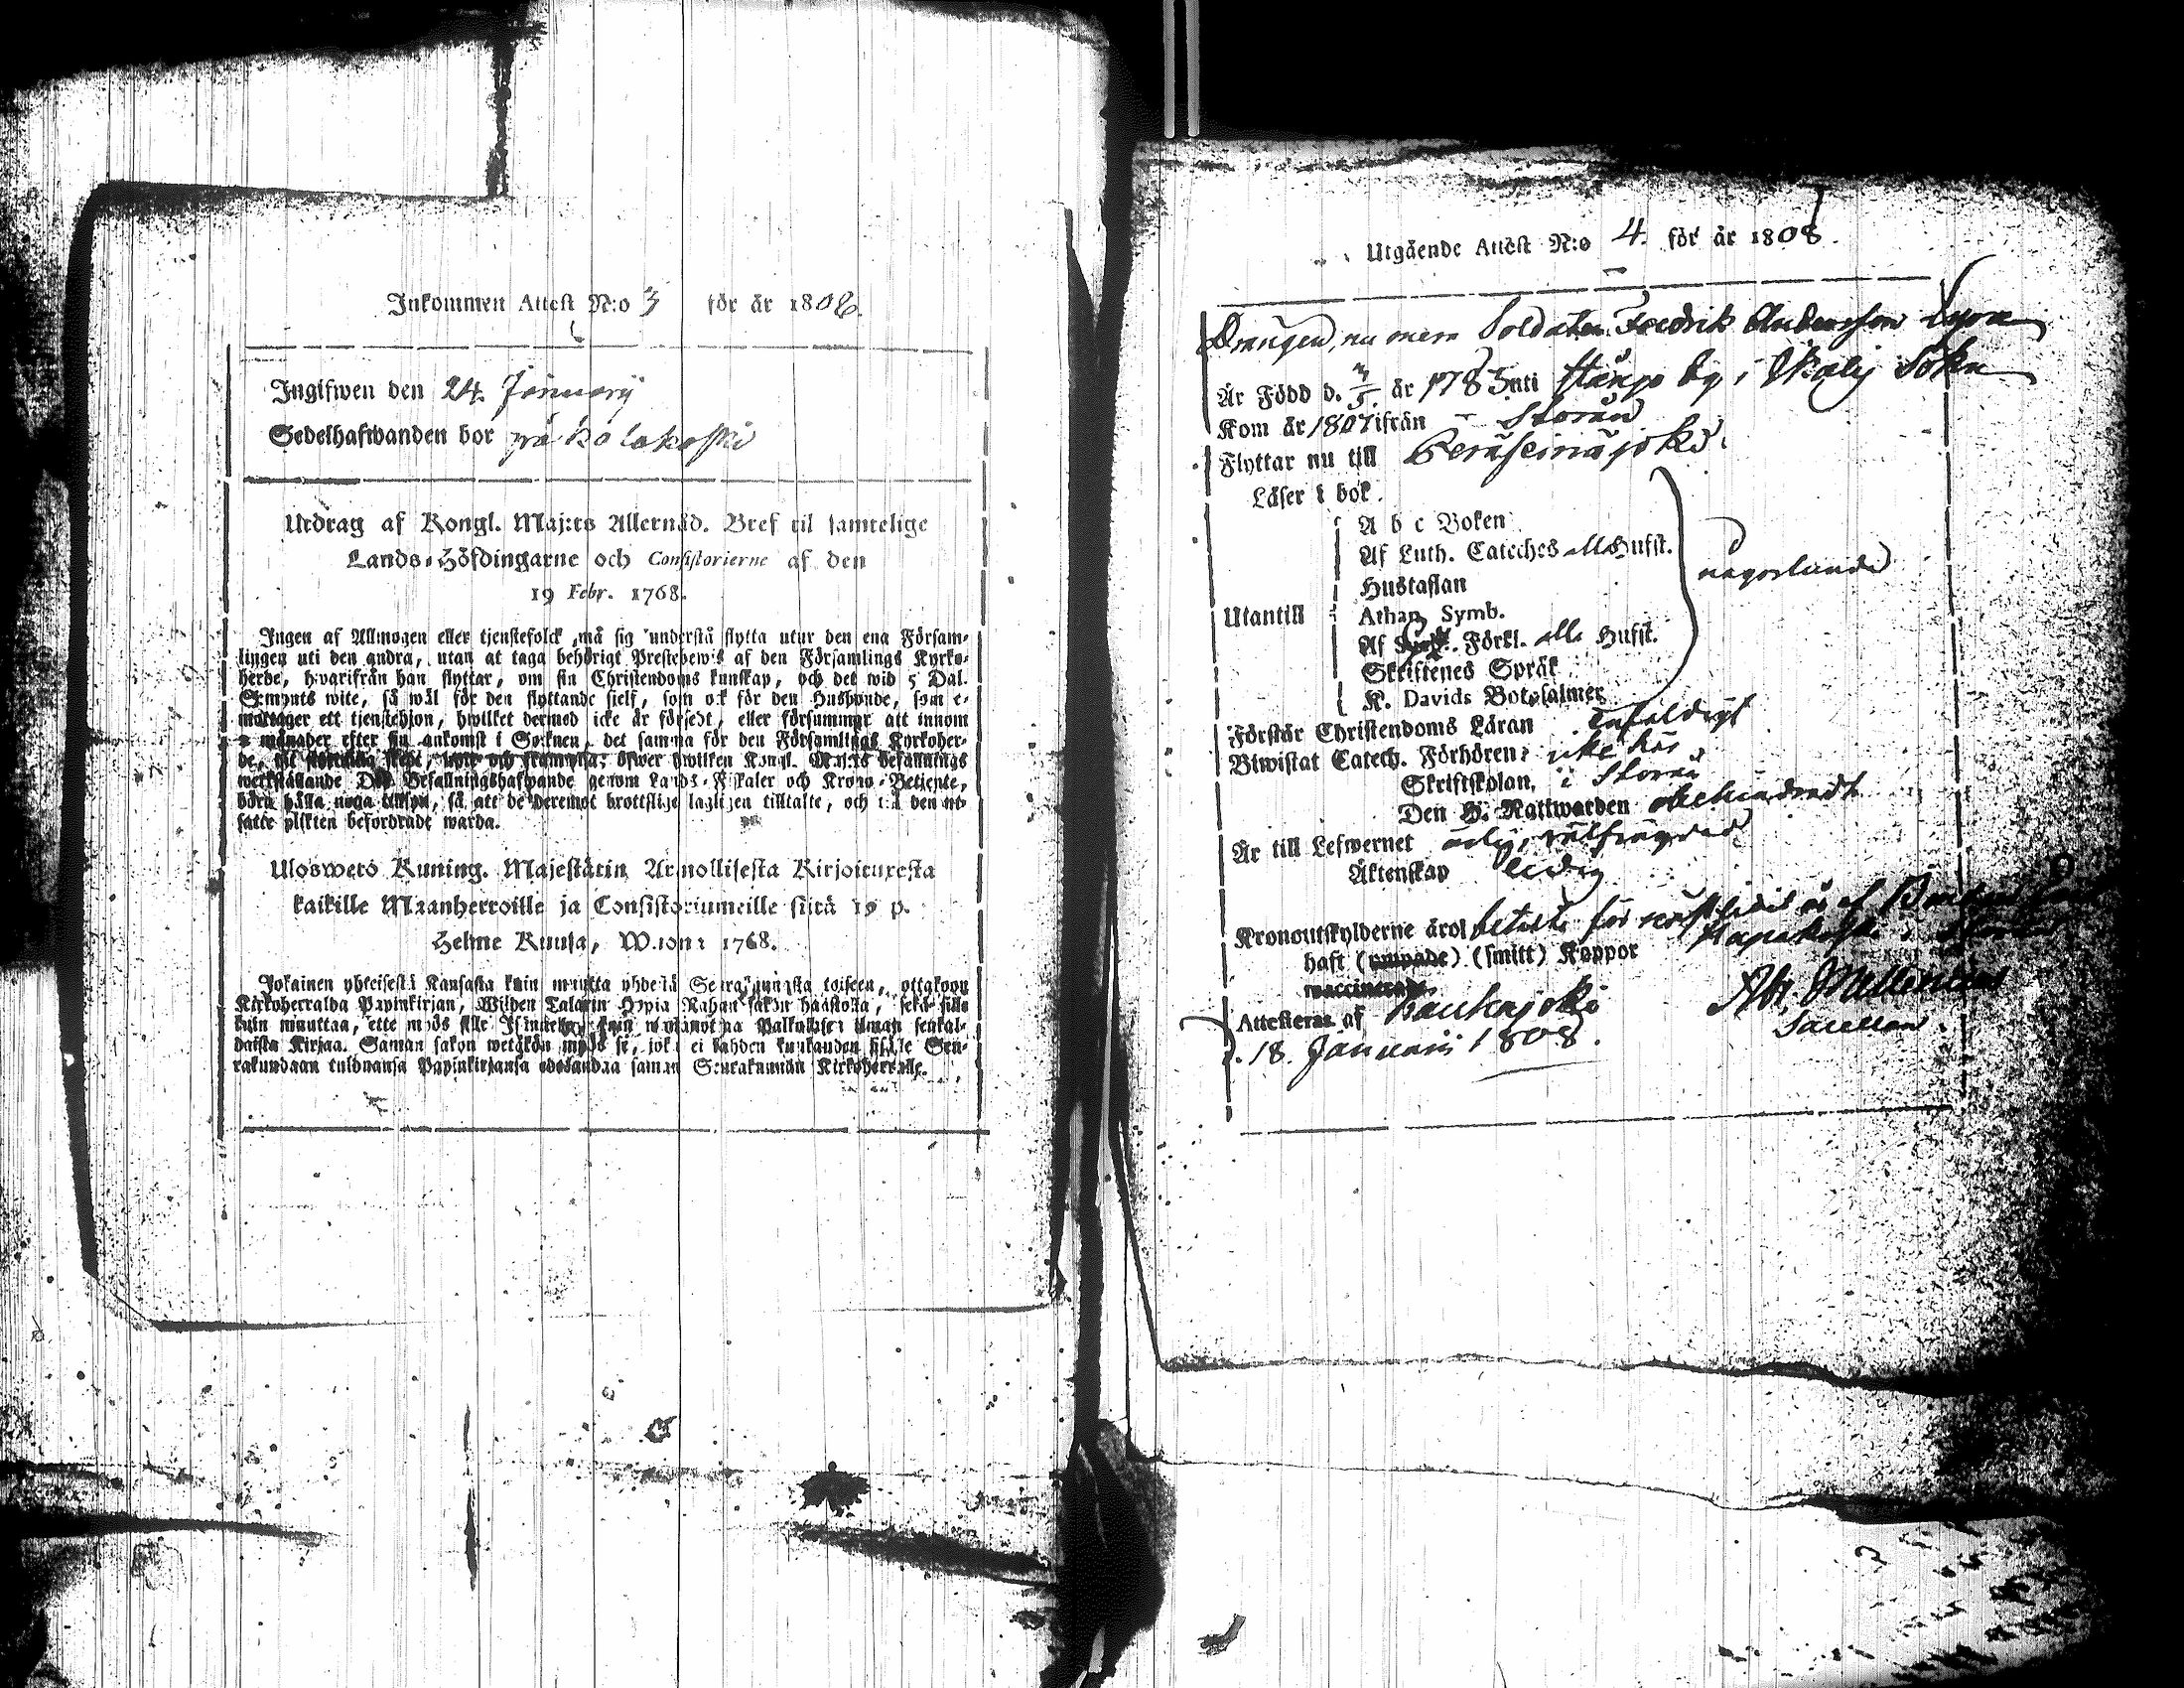 Inkommen Attest N:o 3 för år 1808.
Ingifwen den 24 Januarij
Sedelhafwanden bor på
Utdrag af Kongl. Maj:ts Allernåd. Bref til samtelige
Lands-Höfdingarne och Consistorierne af den
19 Febr. 1768.
Ingen af Allmogen eller tjenstefolck må sig understå flytta utur den ena Försam-
lingen uti den andra, utan at taga behörigt Prestebewis af den Församlings Kyrko-
herde, hwarifrån han flyttar, om sin Christendoms kunskap, och det wid 5 Dal.
S:mynts wite, så wäl för den flyttande sielf, som ock för den Husbonde, som e-
mottager ett tjenstehjon, hwilket dermed icke är försedt, eller försummar att innom
2 månader efter sin ankomst i Socknen, det samma för den Församlings Kyrkoher-
de, öfwer hwilken Kongl. Maj:ts Befallnings
werkställande Des Befallningshafwande genom Lands-Fiskaler och Krono-Betjente,
böra hålla noga tilsyn, så att de deremot brottslige lagligen tilltalte, och til den ut-
satte plikten befordrade warda.
Uloswetö Kuning. Majestätin Armollisesta Kirjoituxesta
kaikille Maanherroille ja Consistoriumeille siitä 19 p.
Helme Kuusa, Wuonna 1768.
Jokainen yhteisestä Kansasta kuin muutta yhdestä Seurakunnasta toiseen, ottakoon
Kirkoherralda Papinkirjan, Wiiden Talarin Hopia Rahan sakon haastolla, sekä sille
kuin muuttaa, ette myös sille Isännelle, kuin Palkollisen ilman senkal-
daista Kirjaa. Saman sakon wetäkön myös se, joka ei kahden kuukauden sisälle Seu-
rakundaan tulduansa Papinkirjansa edesandaa saman Seurakunnan Kirkoherralle.
Utgående Attest N:o 4. för år 1808.
Drängen, nu mera Soldaten Fredrik Andersson Lyra
Är Född d. år 1785 uti by i Socken
Kom år 1807 ifrån Storån
Flyttar nu till Peräseinäjoki.
Läser i bok.
A b c Boken
Af Luth. Cateches alla Hufst.
Hustaflan
någorlunda
Utantill Athan. Symb.
Af Förkl. alla Hufst.
Skriftenes Språk
K. Davids Botpsalmer
Förstår Christendoms Läran enfaldigt
Biwistat Catech. Förhören icke här
Skriftskolan, i Storån
Den H. Nattwarden obehindradt
Är till Lefwernet ärlig, wälfrägdad
Äktenskap ledig
Kronoutskylderne äro betalte för
haft (ympade) (smitt) Koppor
vaccinerade
Attesteras af Kauhajoki
d. 18. Januarii 1808.
Abr.
Sacellan.